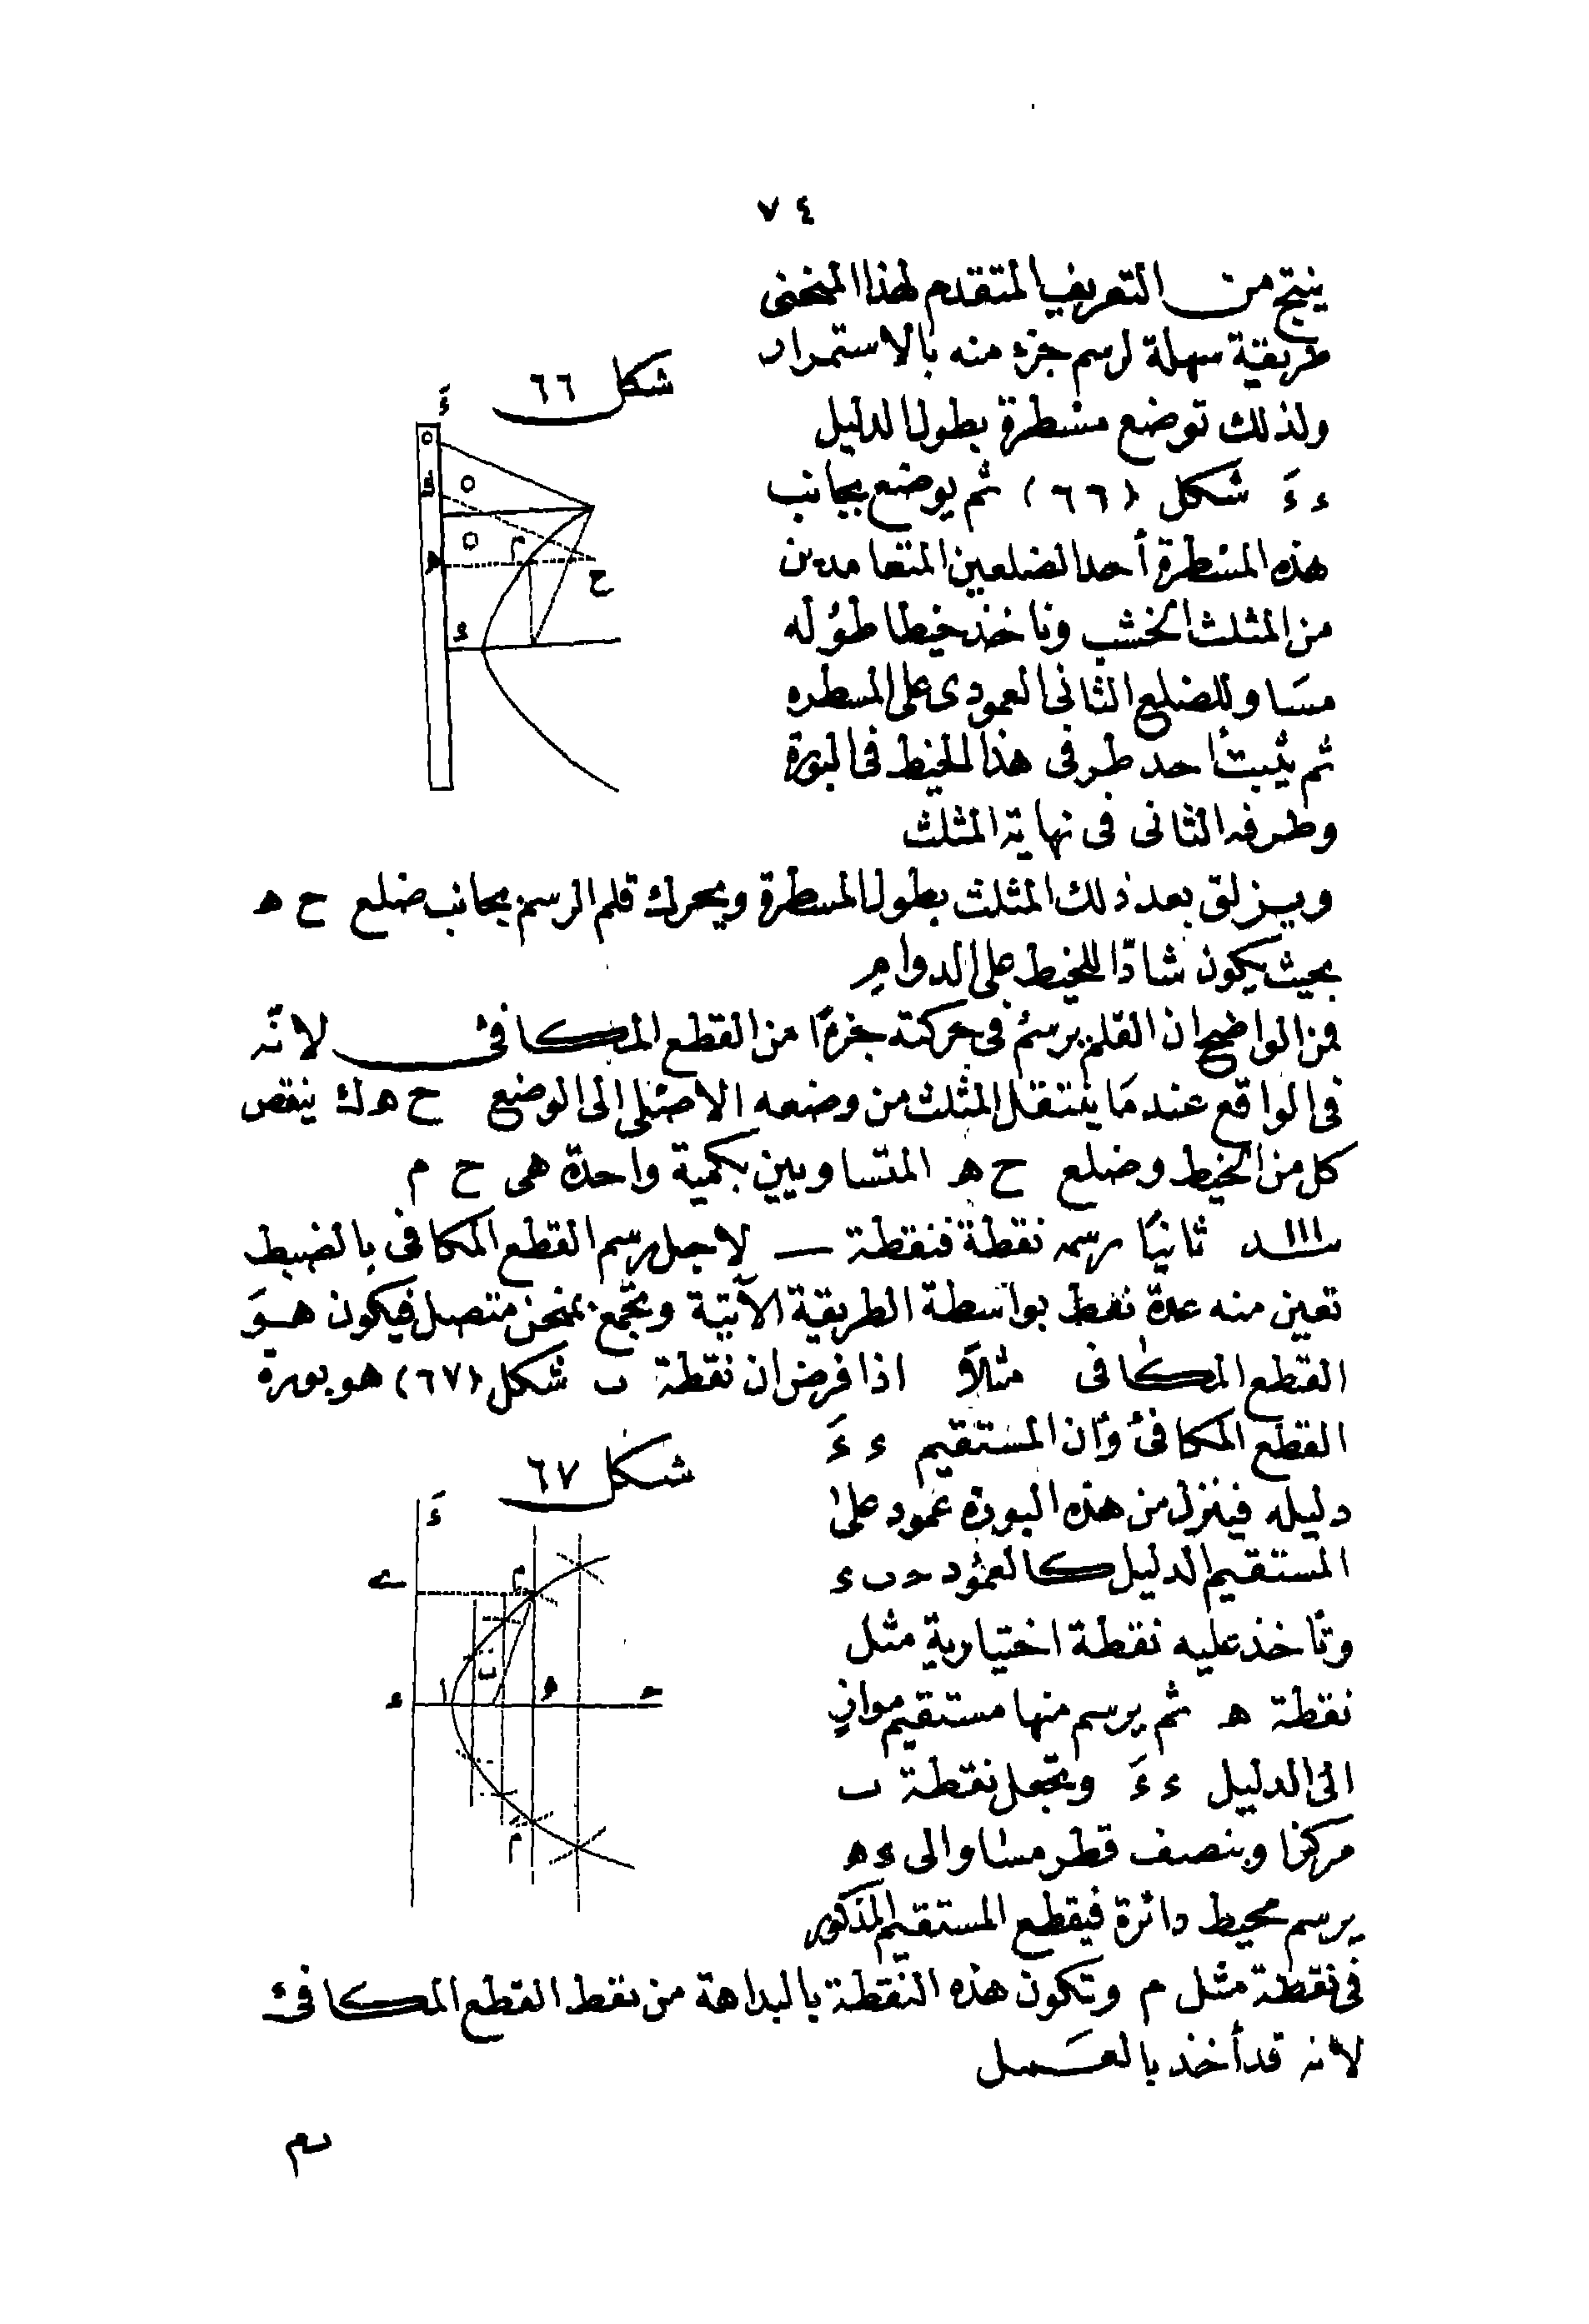 ٧٤
ينتج من التعريف المتقدم لهذا المنحنى
طريقة سهلة لرسم جزء منه بالاستمرار
شكل ٦٦
ولذلك توضع مسطرة بطول الدليل
ء ءَ شكل (٦٦) ثم يوضع بجانب
هذه المسطرة أحد الضلعين المتعامدين
من المثلث الخشب وناخذ خيطا طوله
مساو للضلع الثانى العمودى على المسطره
ثم يثبت احد طرفى هذا الخيط فى البورة
وطرفه الثانى فى نهاية المثلث
ءَ
ك
م
ه
ح
ء
ويزلق بعد ذلك المثلث بطول المسطرة ويحرك قلم الرسم بجانب ضلع ح ه
بحيث يكون شادّا للخيط على الدوام
فمن الواضح ان القلم يرسم فى حركته جزءًا من القطع المكافئ لانّه
فى الواقع عندما ينتقل المثلث من وضعه الاصلى الى الوضع ح ه ك ينقص
كل من الخيط وضلع ح ه المتساويين بكمية واحدة هى ح م
ثانيًا رسمه نقطة فنقطة — لاجل رسم القطع المكافى بالضبط
تعين منه عدة نقط بواسطة الطريقة الآتية وتجمع بمنحن متصل فيكون هو
القطع المكافى مثلاً اذا فرض ان نقطة ب شكل (٦٧) هو بورة
القطع المكافئ وأن المستقيم ء ءَ
شكل ٦٧
دليله فينزل من هذه البورة عمود على
المستقيم الدليل كالعمود حـ ب ء
وتاخذ عليه نقطة اختيارية مثل
نقطة ه ثم يرسم منها مستقيم مواز
الى الدليل ء ءَ وتجعل نقطة ب
مركزا وبنصف قطر مساو الى ء ه
يرسم محيط دائرة فيقطع المستقيم المذكور
ءَ
م
ب
ا
ء
ه
حـ
مَ
فى نقطة مثل م وتكون هذه النقطة بالبداهة من نقط القطع المكافئ
لانه قد أخذ بالعمل
ب م